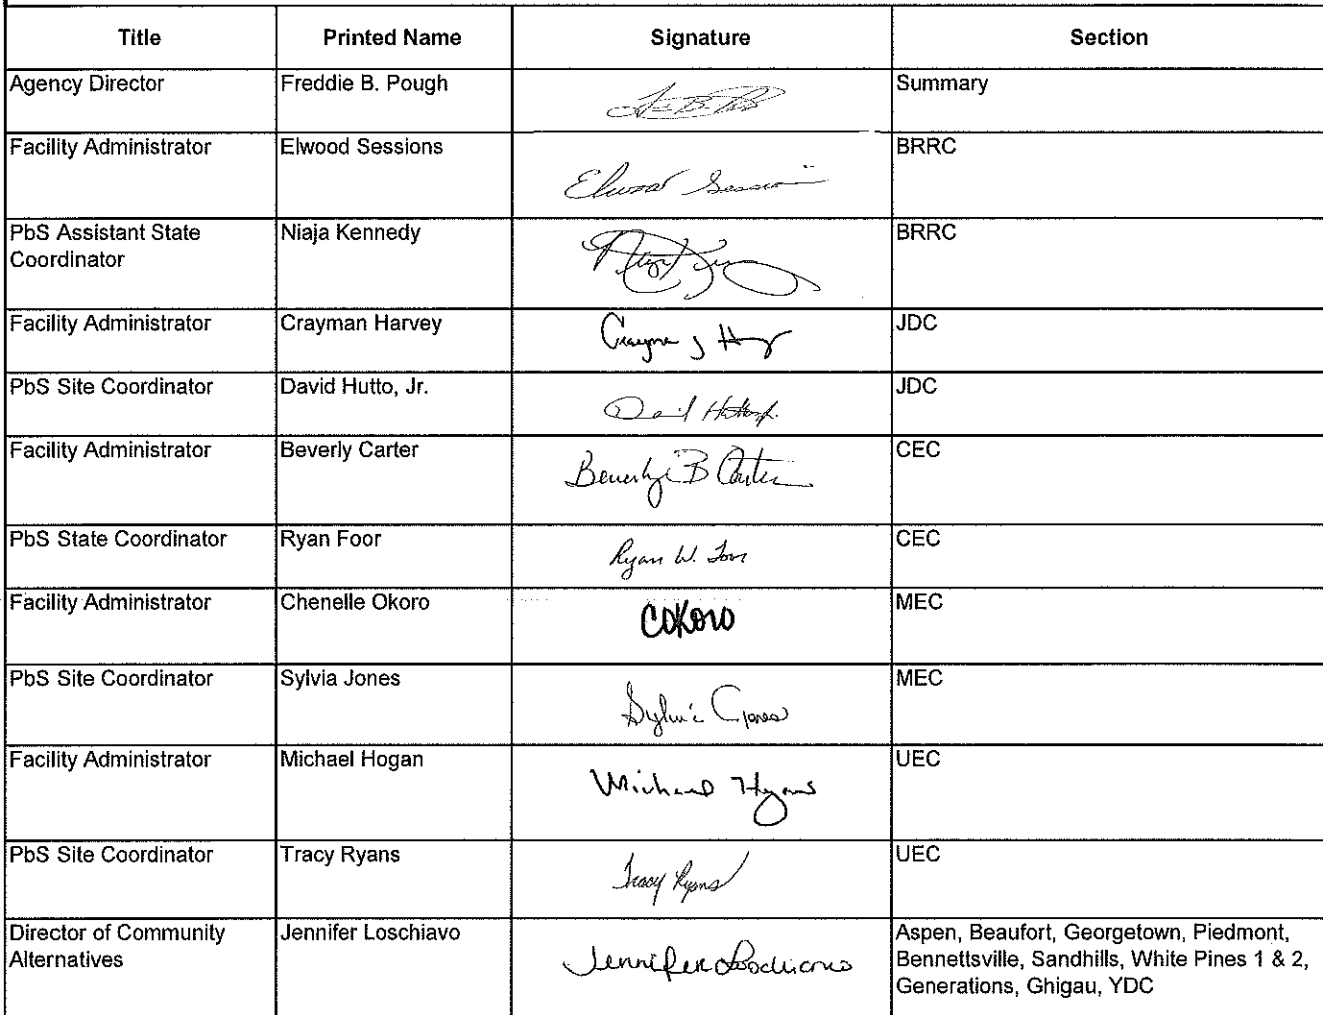 Title Printed Name Signature Section
Agency Director Freddie B. Pough Summary
Facility Administrator Elwood Sessions Elwood Sessions BRRC
PbS Assistant State Niaja Kennedy BRRC
Coordinator
Facility Administrator Crayman Harvey JDC
PbS Site Coordinator David Hutto, Jr. David Hutto Jr. JDC
Facility Administrator Beverly Carter Beverly B Carter CEC
PbS State Coordinator Ryan Foor Ryan W. Foor CEC
Facility Administrator Chenelle Okoro COKORO MEC
PbS Site Coordinator Sylvia Jones Sylvia Jones MEC
Facility Administrator Michael Hogan Michael Hogan UEC
PbS Site Coordinator Tracy Ryans Tracy Ryans UEC
Director of Community Jennifer Loschiavo Jennifer Loschiavo Aspen, Beaufort, Georgetown, Piedmont,
Alternatives Bennettsville, Sandhills, White Pines 1 & 2,
Generations, Ghigau, YDC